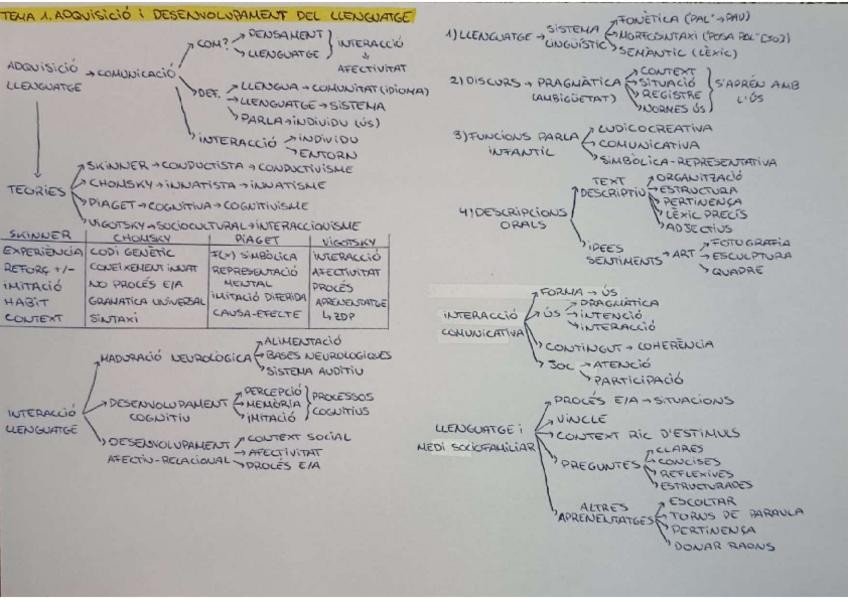 TEMA 1. ADQUISICIÓ i DESENVOLUPAMENT DEL LLENGUATGE
ADQUISICIÓ LLENGUATGE → COMUNICACIÓ
COM? → PENSAMENT
→ LLENGUATGE
INTERACCIÓ
↓
AFECTIVITAT
DEF. → LLENGUA → COMUNITAT (IDIOMA)
→ LLENGUATGE → SISTEMA
→ PARLA → INDIVIDU (ÚS)
INTERACCIÓ → INDIVIDU
→ ENTORN
TEORIES
→ SKINNER → CONDUCTISTA → CONDUCTIVISME
→ CHOMSKY → INNATISTA → INNATISME
→ PIAGET → COGNITIVA → COGNITIVISME
→ VIGOTSKY → SOCIOCULTURAL → INTERACCIONISME
SKINNER CHOMSKY PIAGET VIGOTSKY
EXPERIÈNCIA CODI GENÈTIC F(x) SIMBÒLICA INTERACCIÓ
REFORÇ +/- CONEIXEMENT INNAT REPRESENTACIÓ AFECTIVITAT
IMITACIÓ NO PROCÉS E/A MENTAL PROCÉS
HABIT GRAMATICA UNIVERSAL IMITACIÓ DIFERIDA APRENENTATGE
CONTEXT SINTAXI CAUSA-EFECTE ↳ ZDP
INTERACCIÓ LLENGUATGE
MADURACIÓ NEUROLÒGICA → ALIMENTACIÓ
→ BASES NEUROLOGIQUES
→ SISTEMA AUDITIU
DESENVOLUPAMENT COGNITIU → PERCEPCIÓ
→ MEMÒRIA
→ IMITACIÓ
PROCESSOS COGNITIUS
DESENVOLUPAMENT AFECTIU-RELACIONAL → CONTEXT SOCIAL
→ AFECTIVITAT
→ PROCÉS E/A
1) LLENGUATGE → SISTEMA LINGÜÍSTIC
→ FONÈTICA (PAL' → PAU)
→ MORFOSINTAXI
→ SEMÀNTIC (LÈXIC)
2) DISCURS → PRAGMÀTICA (AMBIGÜETAT)
→ CONTEXT
→ SITUACIÓ
→ REGISTRE
→ NORMES ÚS
S'APRÉN AMB L'ÚS
3) FUNCIONS PARLA INFANTIL
→ LUDICOCREATIVA
→ COMUNICATIVA
→ SIMBÒLICA-REPRESENTATIVA
4) DESCRIPCIONS ORALS
TEXT DESCRIPTIU → ORGANITZACIÓ
→ ESTRUCTURA
→ PERTINENÇA
→ LÈXIC PRECÍS
→ ADJECTIUS
IDEES SENTIMENTS → ART → FOTOGRAFIA
→ ESCULPTURA
→ QUADRE
INTERACCIÓ COMUNICATIVA
→ FORMA → ÚS
→ ÚS → PRAGMÀTICA
→ INTENCIÓ
→ INTERACCIÓ
→ CONTINGUT → COHERÈNCIA
→ JOC → ATENCIÓ
→ PARTICIPACIÓ
LLENGUATGE i MEDI SOCIOFAMILIAR
→ PROCÉS E/A → SITUACIONS
→ VINCLE
→ CONTEXT RIC D'ESTIMULS
→ PREGUNTES → CLARES
→ CONCISES
→ REFLEXIVES
→ ESTRUCTURADES
ALTRES APRENENTATGES → ESCOLTAR
→ TORNS DE PARAULA
→ PERTINENÇA
→ DONAR RAONS